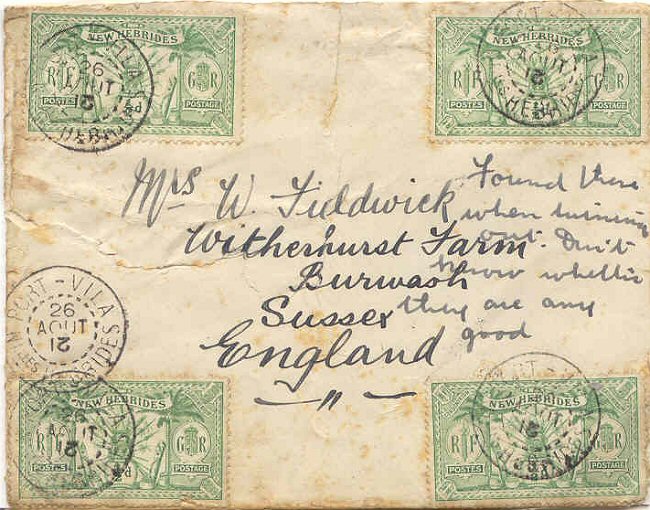 NEW HEBRIDES
RF GR
POSTES POSTAGE
NEW HEBRIDES
RF GR
POSTES POSTAGE
Mrs W. Tiddwick
Witherhurst Farm
Burwash
Sussex
England
Found these
when turning
out. Don't
know whether
they are any
good
PORT-VILA
26
AOUT
12
HEBRIDES
NEW HEBRIDES
RF GR
POSTES POSTAGE
NEW HEBRIDES
RF GR
POSTES POSTAGE